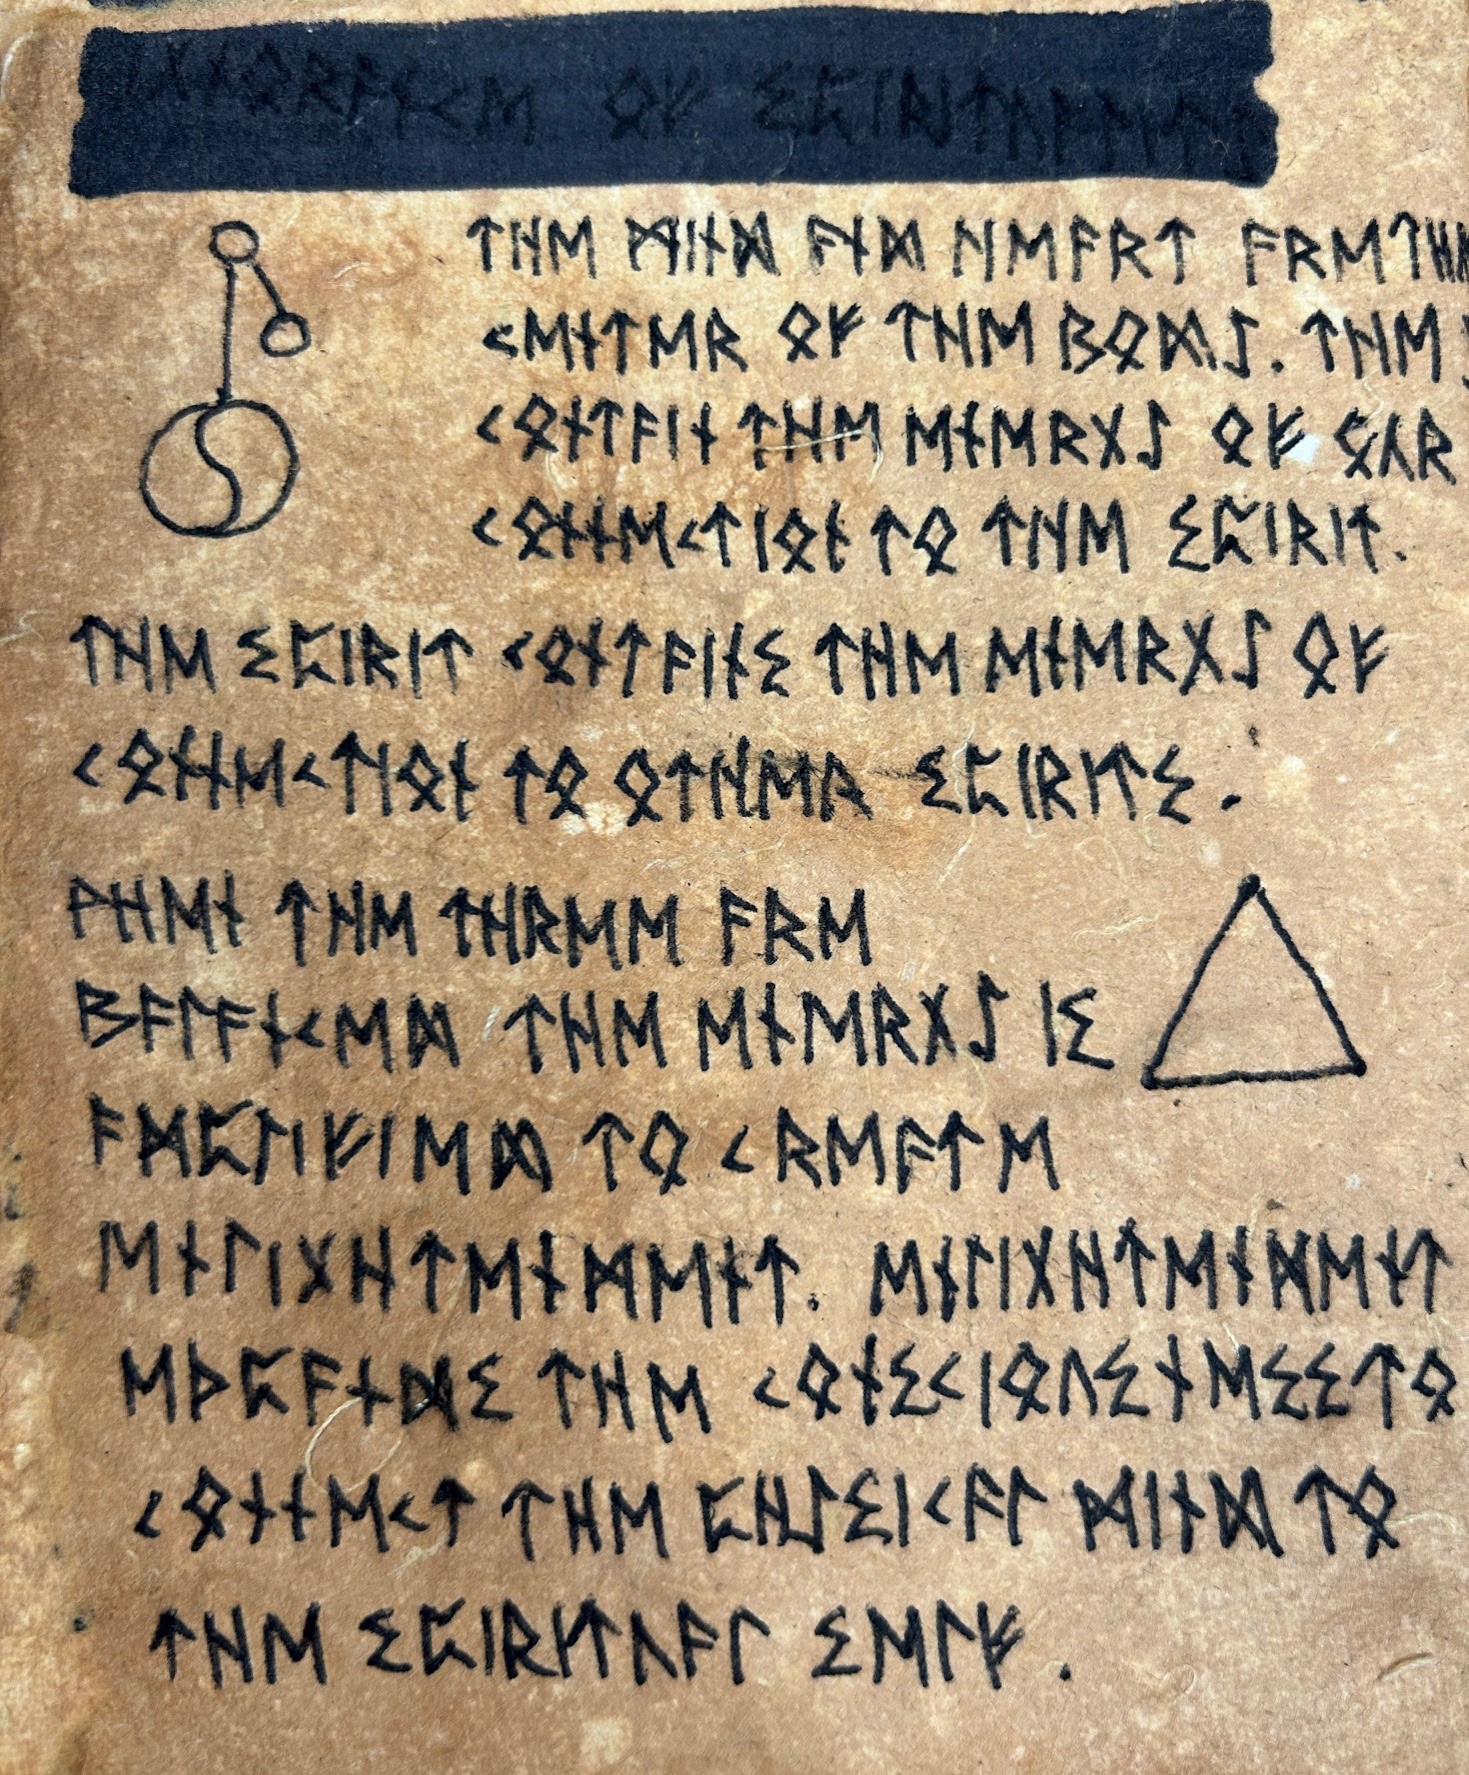 ᛏᚺᛖ ᛗᛁᚾᛞ ᚨᚾᛞ ᚺᛖᚨᚱᛏ ᚨᚱᛖ
ᚲᛖᚾᛏᛖᚱ ᛟᚠ ᛏᚺᛖ ᛒᛟᛞᛇ. ᛏᚺᛖ
ᚲᛟᚾᛏᚨᛁᚾ ᛏᚺᛖ ᛖᚾᛖᚱᚷᛇ ᛟᚠ ᛟᚢᚱ
ᚲᛟᚾᚾᛖᚲᛏᛁᛟᚾ ᛏᛟ ᛏᚺᛖ ᛊᛈᛁᚱᛁᛏ.
ᛏᚺᛖ ᛊᛈᛁᚱᛁᛏ ᚲᛟᚾᛏᚨᛁᚾᛊ ᛏᚺᛖ ᛖᚾᛖᚱᚷᛇ ᛟᚠ
ᚲᛟᚾᚾᛖᚲᛏᛁᛟᚾ ᛏᛟ ᛟᛏᚺᛖᚱ ᛊᛈᛁᚱᛁᛏᛊ.
ᚹᚺᛖᚾ ᛏᚺᛖ ᛏᚺᚱᛖᛖ ᚨᚱᛖ
ᛒᚨᛚᚨᚾᚲᛖᛞ ᛏᚺᛖ ᛖᚾᛖᚱᚷᛇ ᛁᛊ
ᚨᛗᛈᛚᛁᚠᛁᛖᛞ ᛏᛟ ᚲᚱᛖᚨᛏᛖ
ᛖᚾᛚᛁᚷᚺᛏᛖᚾᛗᛖᚾᛏ. ᛖᚾᛚᛁᚷᚺᛏᛖᚾᛗᛖᚾᛏ
ᛖᚦᛈᚨᚾᛞᛊ ᛏᚺᛖ ᚲᛟᚾᛊᚲᛁᛟᚢᛊᚾᛖᛊᛊ ᛏᛟ
ᚲᛟᚾᚾᛖᚲᛏ ᛏᚺᛖ ᛈᚺᛇᛊᛁᚲᚨᛚ ᛗᛁᚾᛞ ᛏᛟ
ᛏᚺᛖ ᛊᛈᛁᚱᛁᛏᚢᚨᛚ ᛊᛖᛚᚠ.